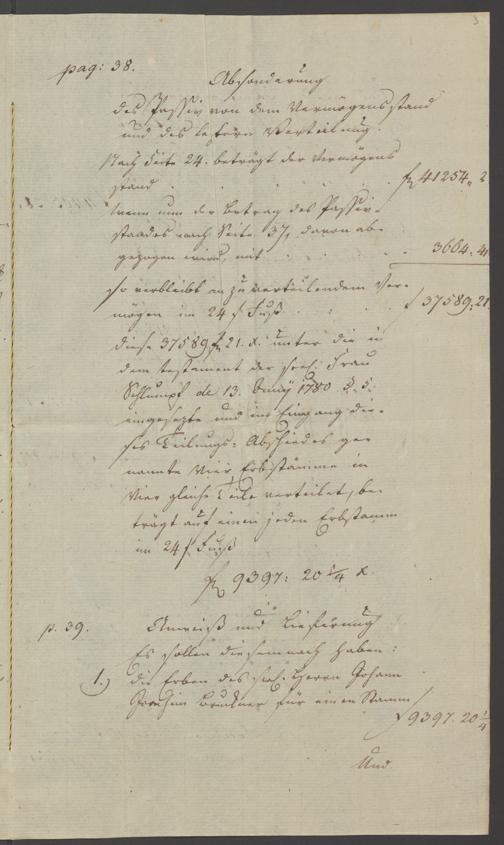 3
pag: 38.
Absonderung
des Passiv von dem Vermögens stand
und des leztern Verteilung.
Nach Seite 24. beträgt der Vermögens
stand . . . . . f 41254. 2
Wenn nun der Betrag des Passiv-
standes nach Seite 37, davon ab-
gezogen wird, mit . . . 3664. 41
So verbleibt an zu verteilendem Ver-
mögen im 24 f Fuß . . . f 37589. 21
diese 37589 f 21. x. unter die in
dem testament der seel. Frau
Schlumpf de 13. May 1780 §. 5.
eingesezte und im Eingang die-
ses Teilungs-Abschiedes ge-
nannte vier Erbstämme in
vier gleiche Teile verteilet, be-
trägt auf einen jeden Erbstamm
im 24 f. Fuß
f 9397: 20 1/4 x
p. 39.
und Lieferung
Es sollen diesemnach haben:
1.) die Erben des seel. Herrn Johann
Joachim für einen Stamm
f 9397. 20 1/4
Und